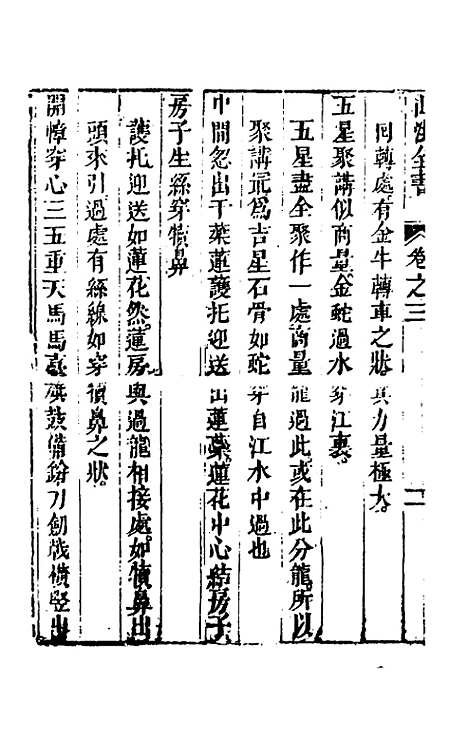 全書 卷之三 二
回轉處有金牛轉車之狀其力量極大
五星聚講似商量金蛇過水穿江裏
五星盡全聚作一處商量龍過此或在此分龍所以
聚講元為吉星石骨如蛇穿自江水中過也
中間忽出千葉蓮護托迎送出蓮葉蓮花中心結房子
房子生絲穿犢鼻
護托迎送如蓮花然蓮房與過龍相接處如犢鼻出
頭來引過處有絲線如穿犢鼻之狀
開幛穿心三五重天馬馬旗鼓備鎗刀劍戟橫竪出